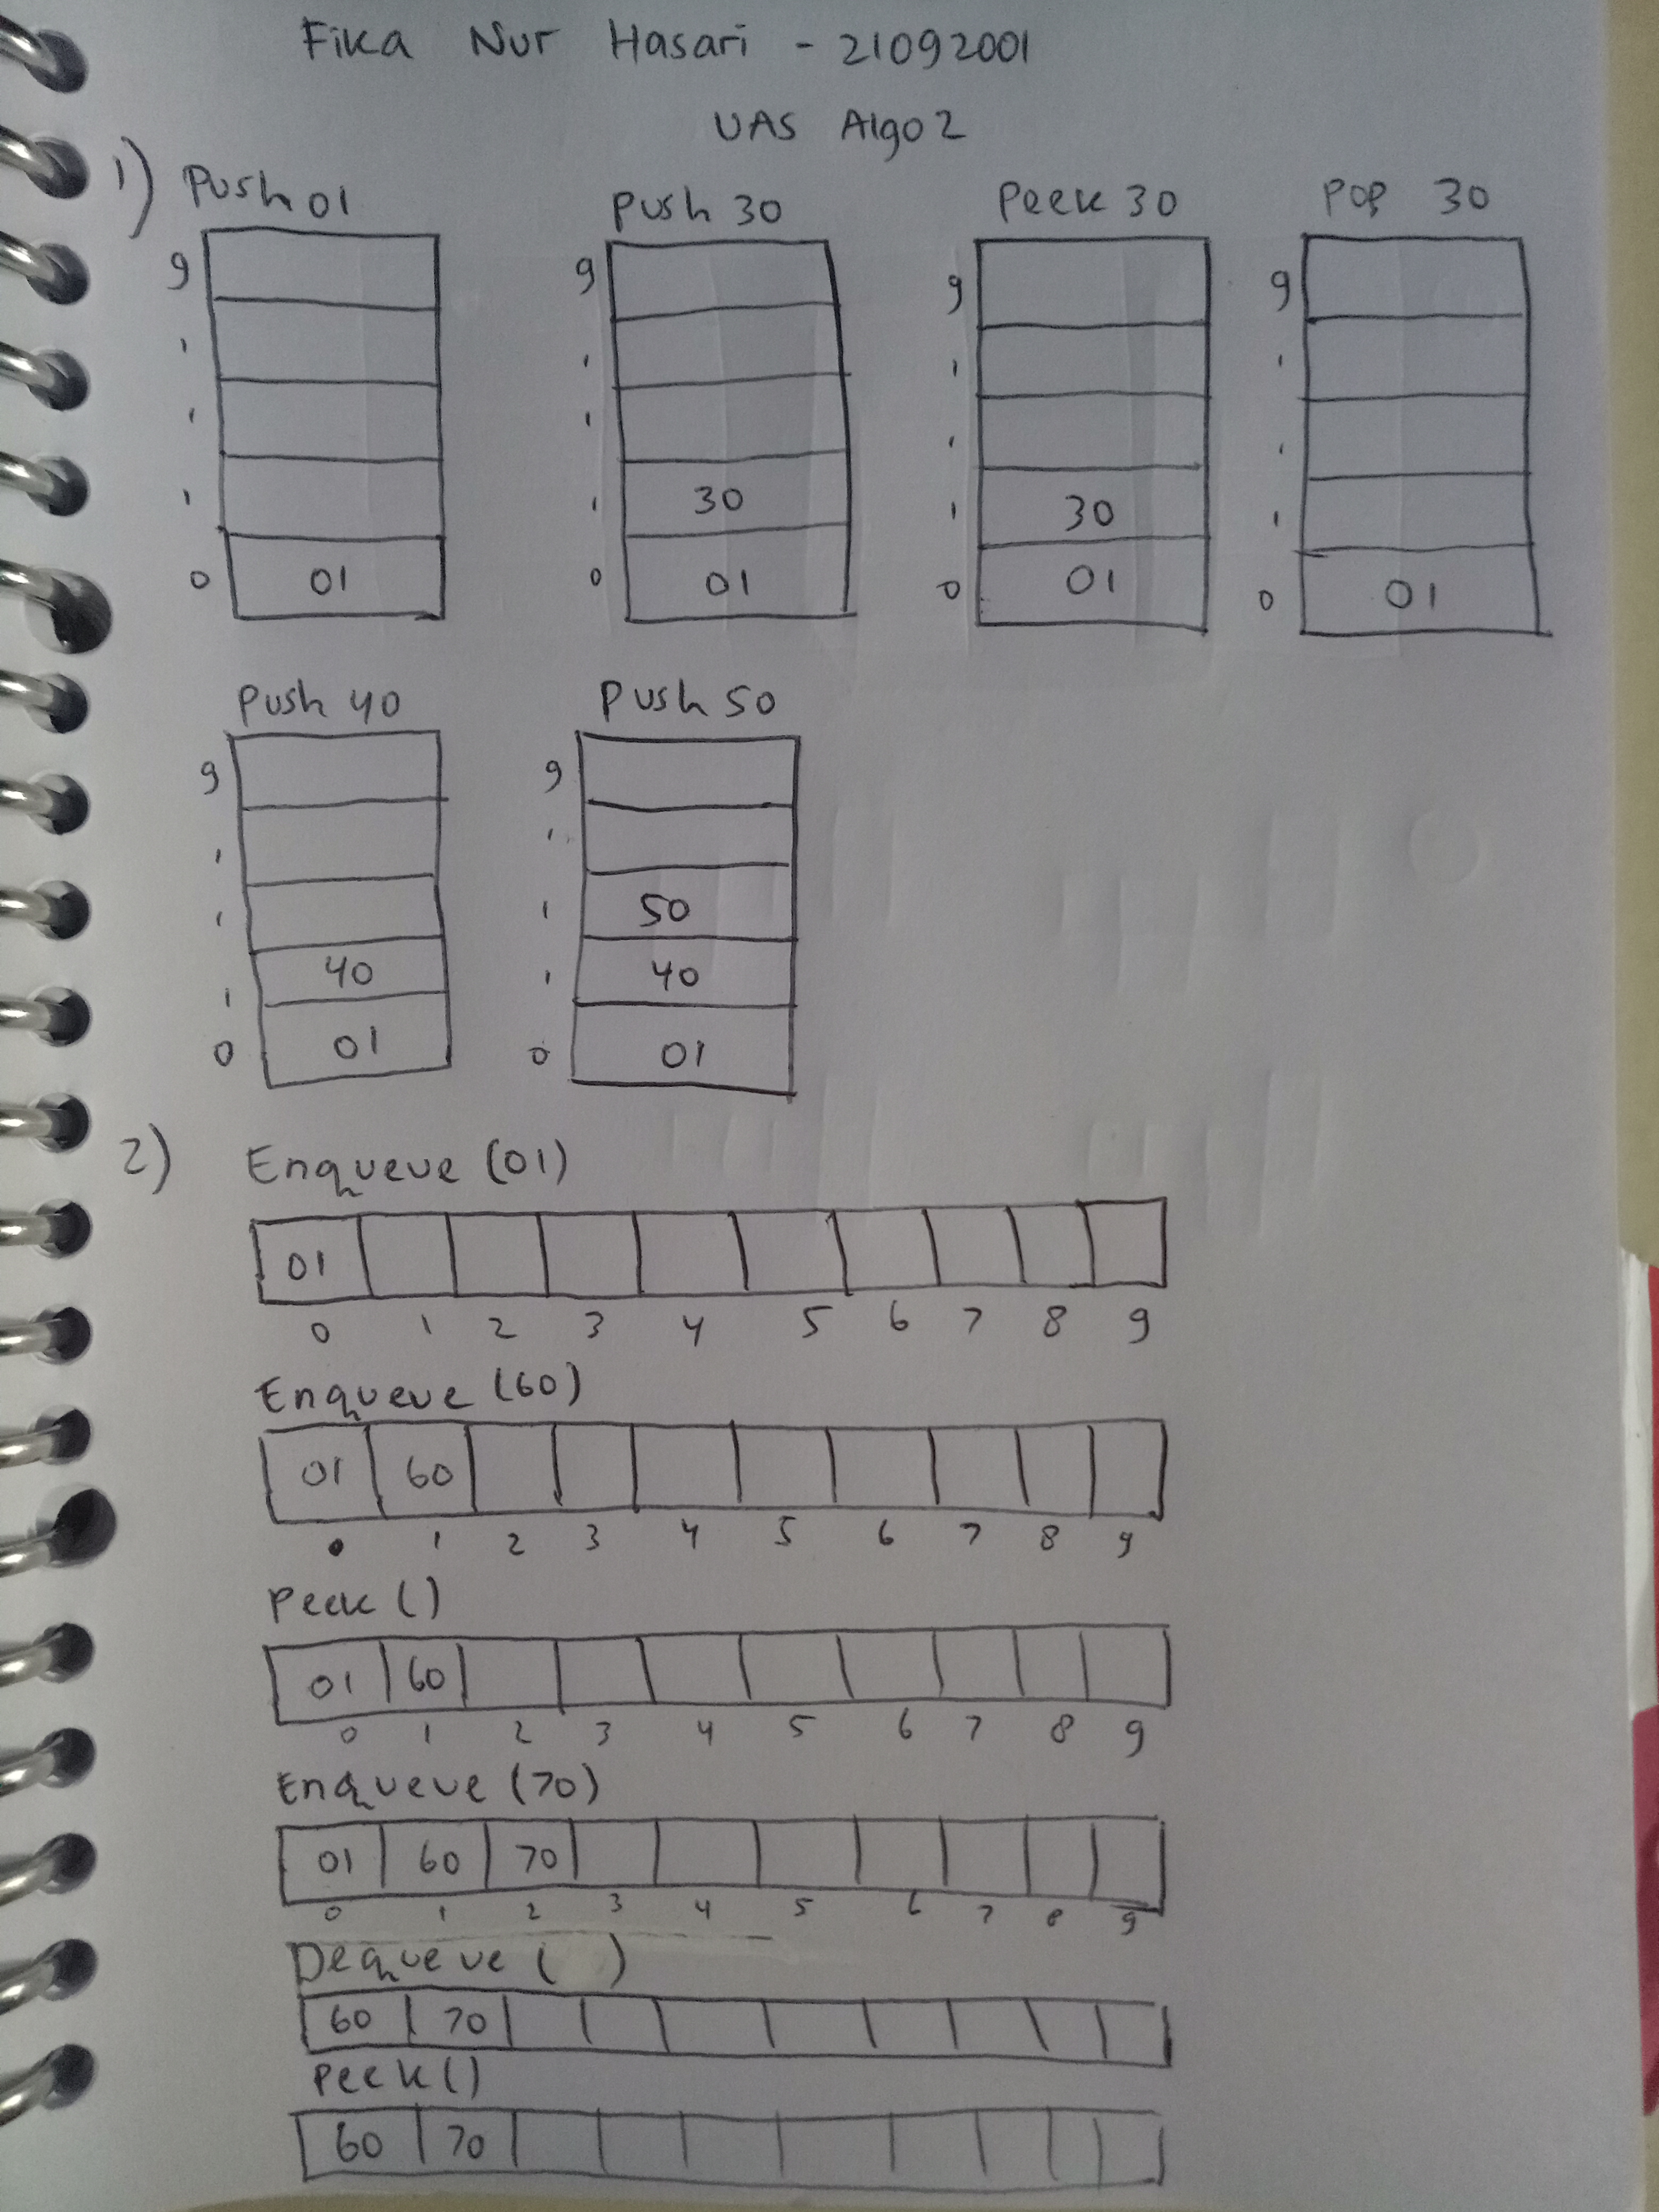 Fika Nur Hasari - 21092001
UAS Algo2
1) Push 01
9
0 01
Push 30
9
30
0 01
Peek 30
9
30
0 01
Pop 30
9
0 01
Push 40
9
40
0 01
Push 50
9
50
40
0 01
2) Enqueue (01)
01
0 1 2 3 4 5 6 7 8 9
Enqueue (60)
01 60
0 1 2 3 4 5 6 7 8 9
Peek ()
01 60
0 1 2 3 4 5 6 7 8 9
Enqueue (70)
01 60 70
0 1 2 3 4 5 6 7 8 9
Dequeue ( )
60 70
Peek ()
60 70